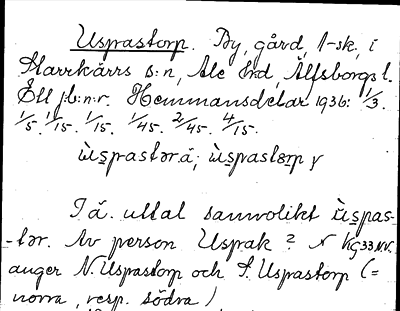 Uspastorp. By, gård, 1 sk, i
Starrkärrs s:n, Ale hrd, Älfsborgs l.
Ett j:b:n:r. Hemmansdelar 1936: 1/3.
1/5. 1/15. 1/15. 1/45. 2/45. 4/15.
ùspastərå; ùspastərp y
I ä. uttal sannolikt ùspas-
-tər. Av person Uspak? N Kg 33 NV.
anger N. Uspastorp och S. Uspastorp (=
norra, resp. södra)